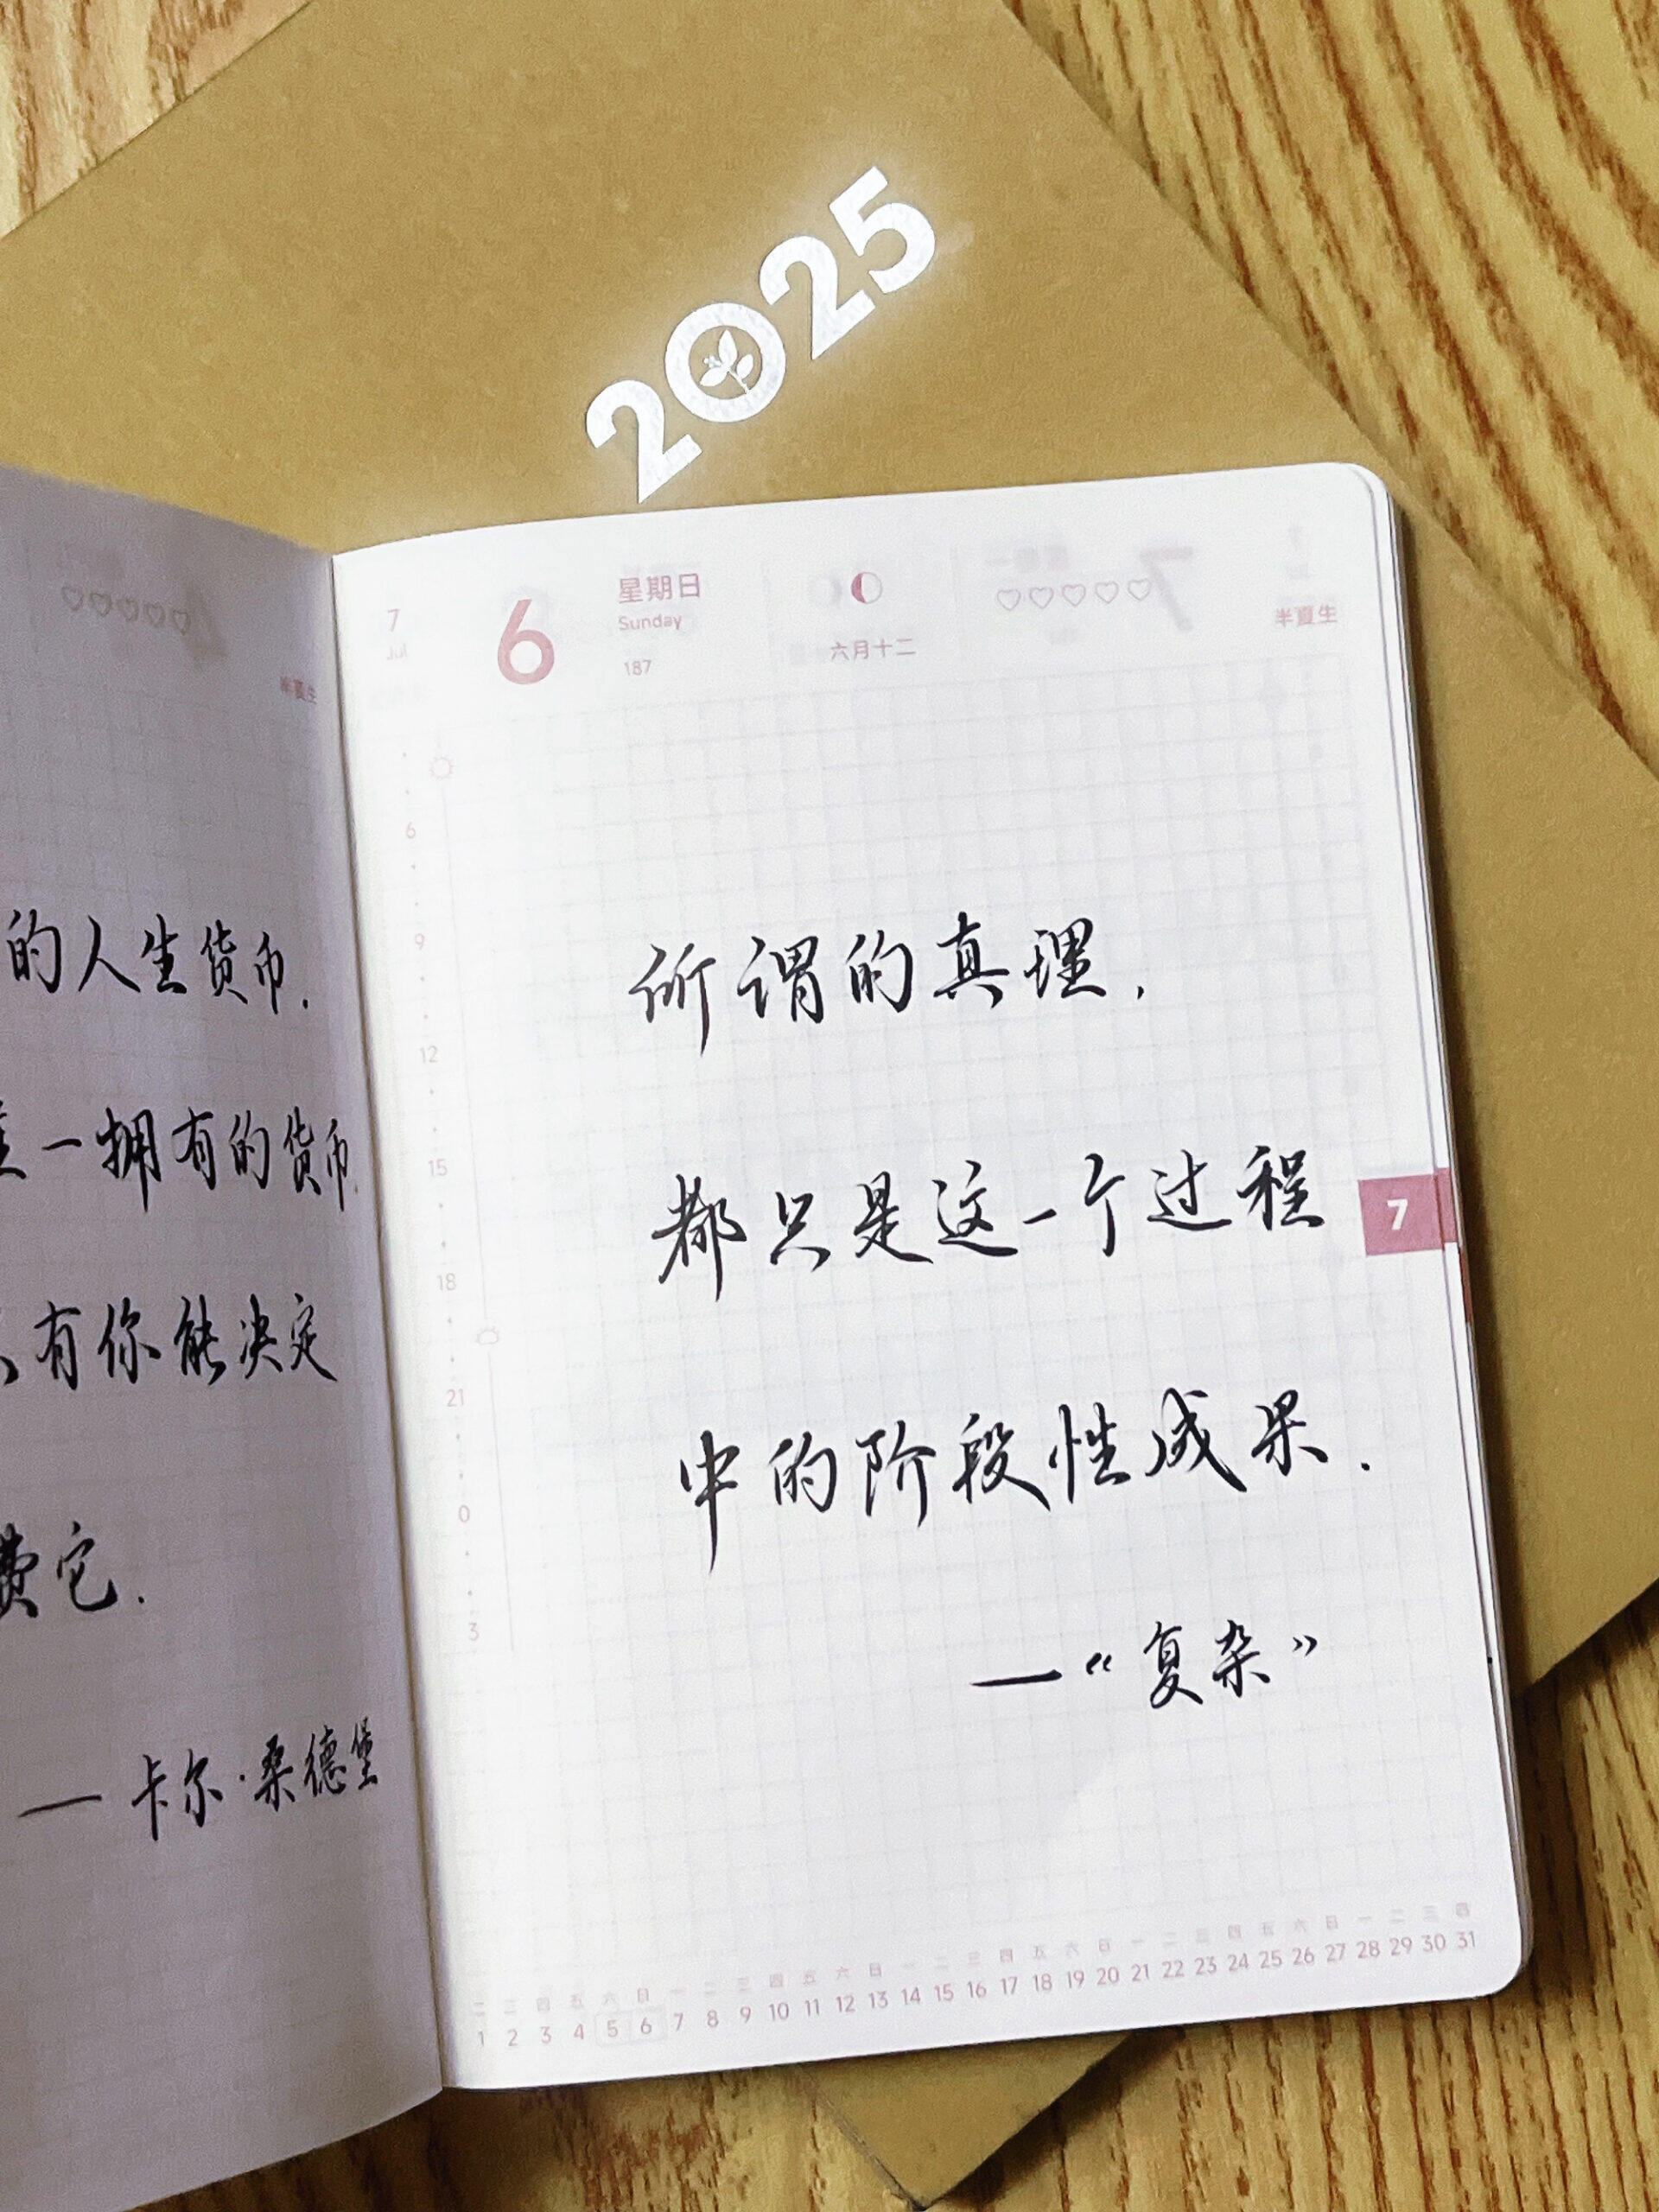 2025
的人生货币.
一拥有的货币.
有你能决定
费它.
— 卡尔·桑德堡
半夏生
7
Jul
6
星期日
Sunday
187
六月十二
半夏生
6
9
12
15
18
21
0
3
所谓的真理,
都只是这一个过程
中的阶段性成果.
—“复杂”
7
二 三 四 五 六 日 一 二 三 四 五 六 日 一 二 三 四 五 六 日 一 二 三 四 五 六 日 一 二 三 四
1 2 3 4 5 6 7 8 9 10 11 12 13 14 15 16 17 18 19 20 21 22 23 24 25 26 27 28 29 30 31